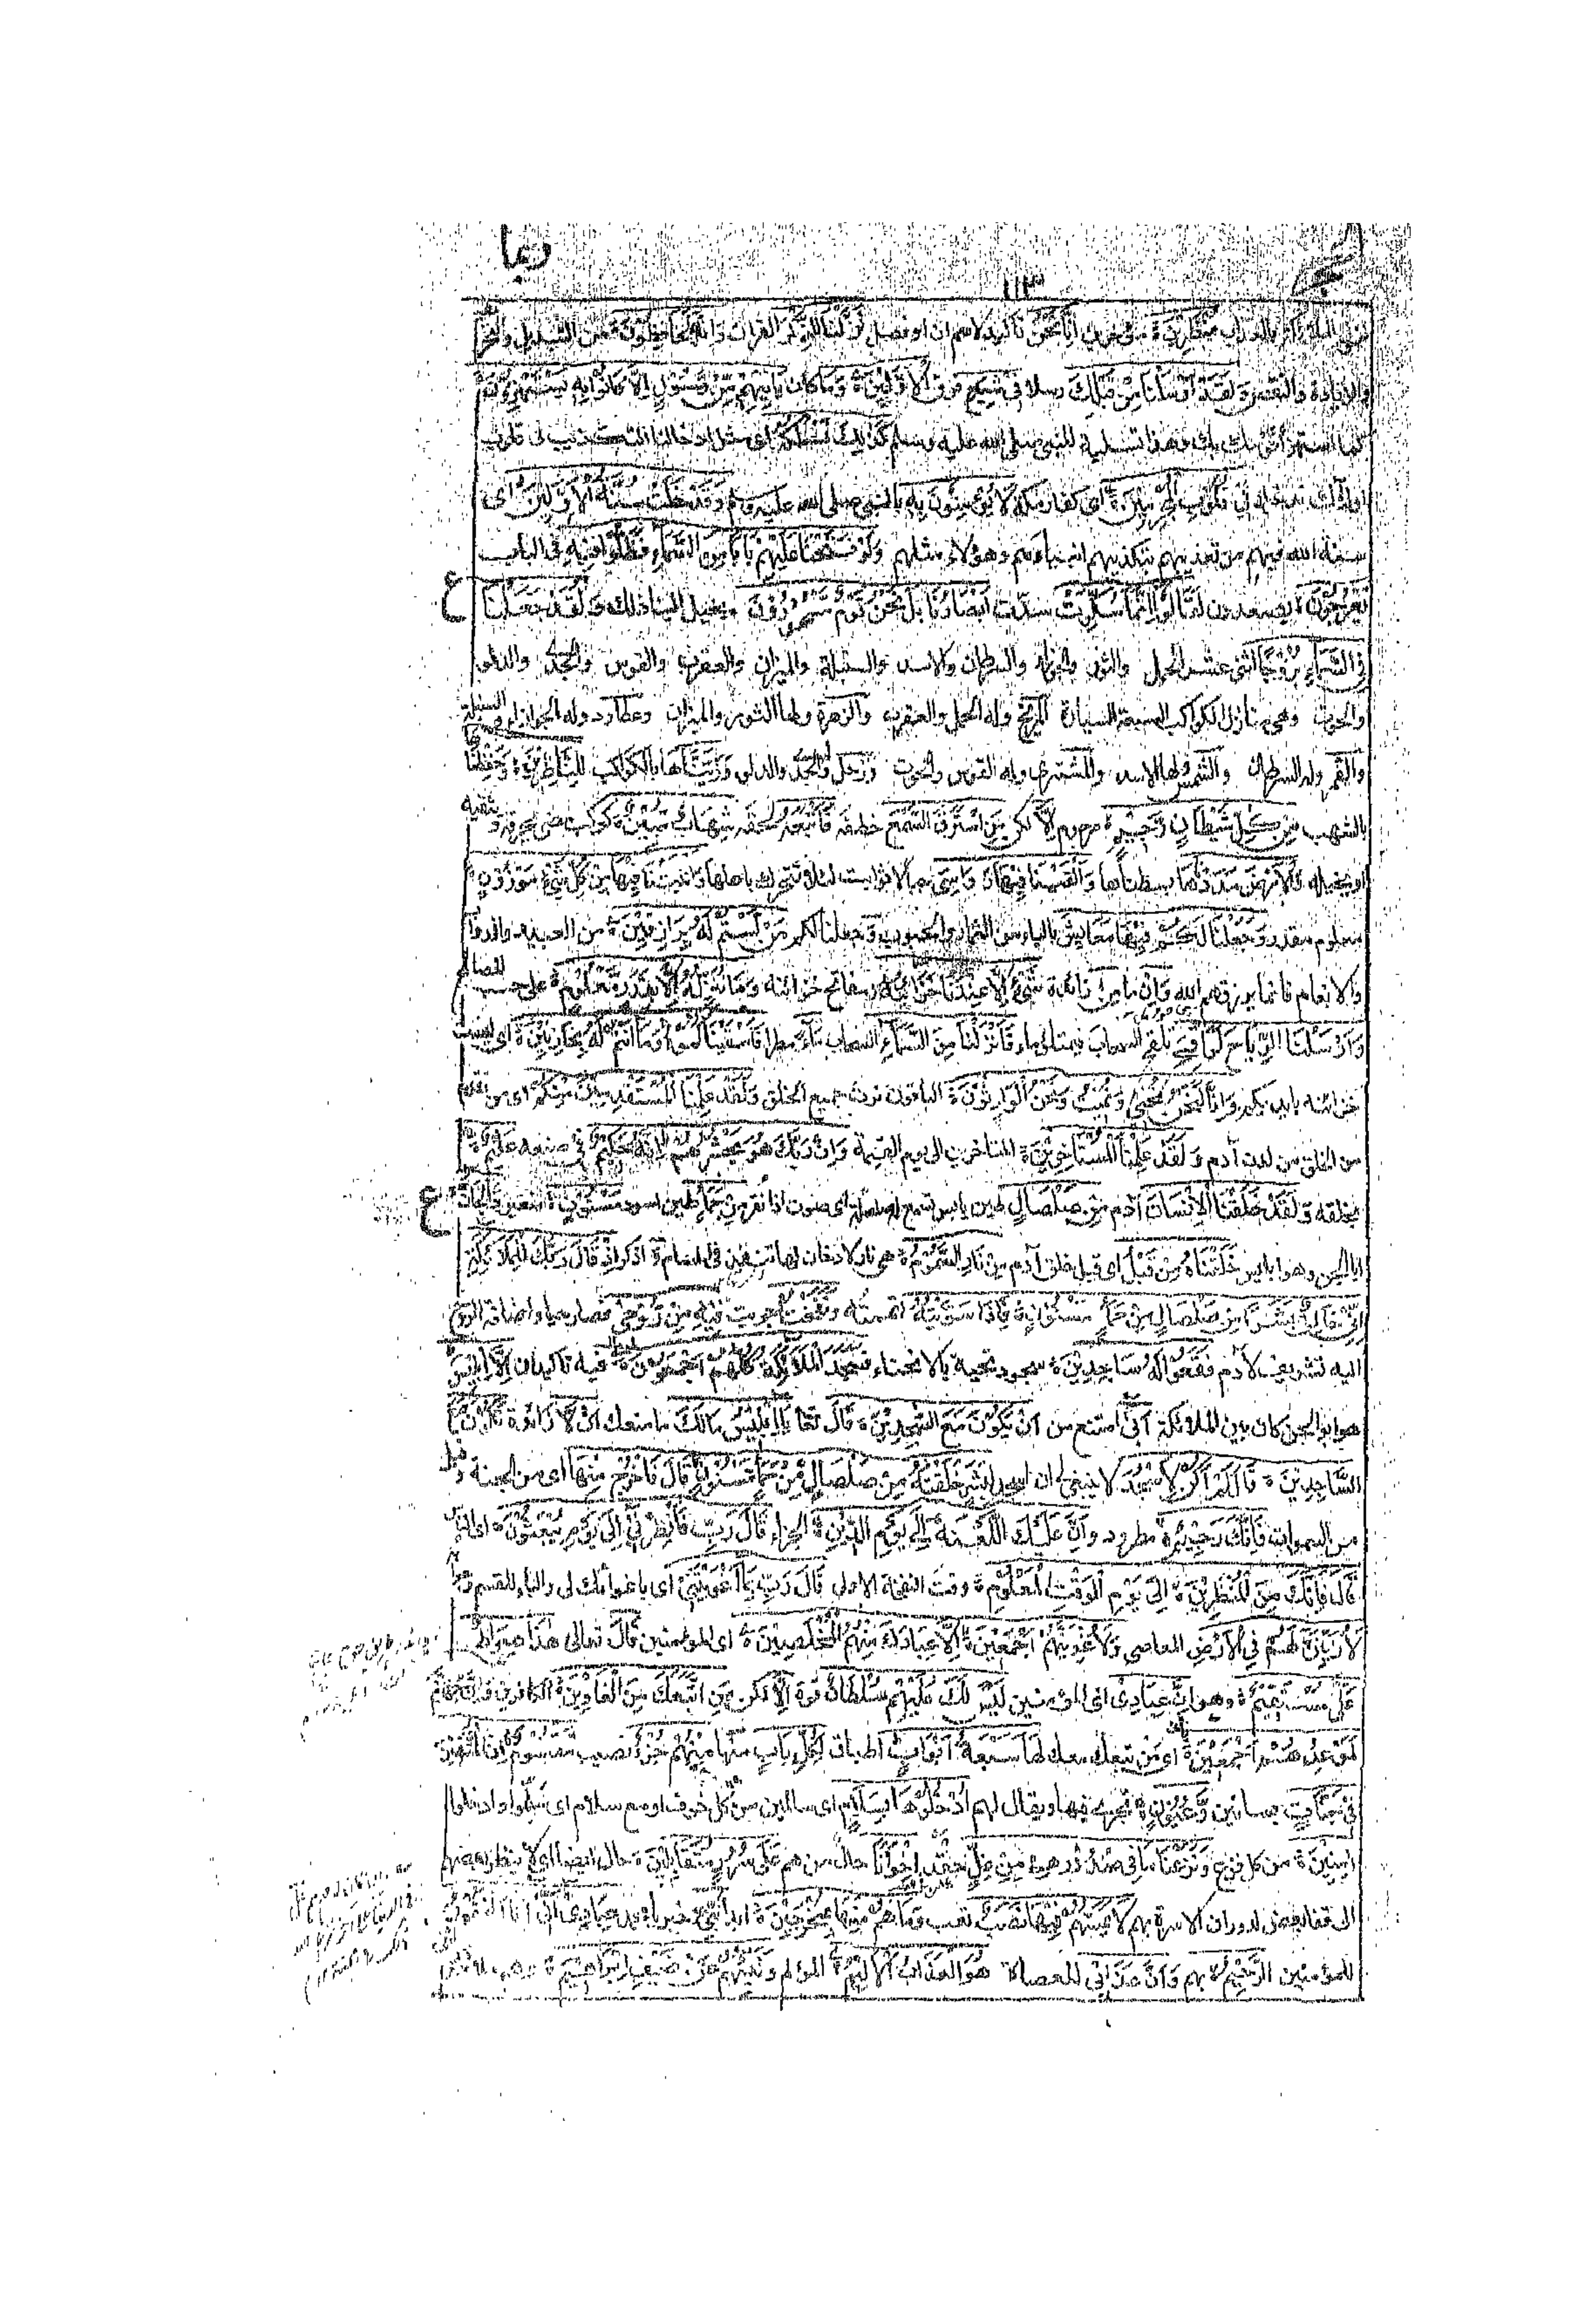 ربما
١١٣
مؤخرين إِنَّا نَحْنُ تاكيد لاسم ان او فصل نَزَّلْنَا الذِّكْرَ القران وَإِنَّا لَهُ لَحَافِظُوْنَ ة من التبديل والتحر
والزيادة والنقص وَلَقَدْ أَرْسَلْنَا مِنْ قَبْلِكَ رسلا فِيْ شِيَعِ فرق الْأَوَّلِيْنَ ة وَمَا كان يَأْتِيْهِمْ مِّنْ رَّسُوْلٍ إِلَّا كَانُوْا بِهِ يَسْتَهْزِءُوْنَ ة
كذلك تسلية للنبى صلى الله عليه وسلم كَذٰلِكَ نَسْلُكُهُ اى مثل ادخالنا التكذيب فى قلوب
اولئك ندخله فِيْ قُلُوْبِ الْمُجْرِمِيْنَ ة اى كفار مكة لَا يُؤْمِنُوْنَ بِهِ بالنبى صلى الله عليه وسلم وَقَدْ خَلَتْ سُنَّةُ الْأَوَّلِيْنَ اى
سنة الله فيهم من تعذيبهم بتكذيبهم انبياءهم وهؤلاء مثلهم وَلَوْ فَتَحْنَا عَلَيْهِمْ بَابًا مِّنَ السَّمَاءِ فَظَلُّوْا فِيْهِ فى الباب
يَعْرُجُوْنَ ة يصعدون لَقَالُوْا إِنَّمَا سُكِّرَتْ سدّت أَبْصَارُنَا بَلْ نَحْنُ قَوْمٌ مَّسْحُوْرُوْنَ ة يخيل الينا ذلك وَلَقَدْ جَعَلْنَا
ع
فِي السَّمَاءِ بُرُوْجًا اثنى عشر الحمل والثور والجوزاء والسرطان والاسد والسنبلة والميزان والعقرب والقوس والجدى والدلو
والحوت وهى منازل الكواكب السبعة السيارة المريخ وله الحمل والعقرب والزهرة ولها الثور والميزان وعطارد وله الجوزاء والسنبلة
والقمر وله السرطان والشمس ولها الاسد والمشترى وله القوس والحوت وزحل وله الجدى والدلو وَزَيَّنَّاهَا بالكواكب لِلنَّاظِرِيْنَ ة وَحَفِظْنَا
بالشهب مِنْ كُلِّ شَيْطَانٍ رَّجِيْمٍ ة مرجوم إِلَّا لكن مَنِ اسْتَرَقَ السَّمْعَ خطفه فَأَتْبَعَهُ لحقه شِهَابٌ مُّبِيْنٌ ة كوكب مضىء يحرقه او يثقبه
او يخبله وَالْأَرْضَ مَدَدْنَاهَا بسطناها وَأَلْقَيْنَا فِيْهَا رَوَاسِيَ جبالا ثوابت لئلا تتحرك باهلها وَأَنْبَتْنَا فِيْهَا مِنْ كُلِّ شَيْءٍ مَّوْزُوْنٍ ة
معلوم مقدر وَجَعَلْنَا لَكُمْ فِيْهَا مَعَايِشَ بالياء من الثمار والحبوب وَجعلنا لكم مَنْ لَّسْتُمْ لَهُ بِرَازِقِيْنَ ة من العبيد والدواب
والانعام فانما يرزقهم الله وَإِنْ ما مِّنْ زائدة شَيْءٍ إِلَّا عِنْدَنَا خَزَائِنُهُ مفاتح خزائنه وَمَا نُنَزِّلُهُ إِلَّا بِقَدَرٍ مَّعْلُوْمٍ ة على حسب المصالح
وَأَرْسَلْنَا الرِّيَاحَ لَوَاقِحَ تلقح السحاب فيمتلئ ماء فَأَنْزَلْنَا مِنَ السَّمَاءِ السحاب مَاءً مطرا فَأَسْقَيْنَاكُمُوْهُ وَمَا أَنْتُمْ لَهُ بِخَازِنِيْنَ ة اى ليست
خزائنه بايديكم وَإِنَّا لَنَحْنُ نُحْيِيْ وَنُمِيْتُ وَنَحْنُ الْوَارِثُوْنَ ة الباقون نرث جميع الخلق وَلَقَدْ عَلِمْنَا الْمُسْتَقْدِمِيْنَ مِنْكُمْ اى من تقدم
من الخلق من لدن آدم وَلَقَدْ عَلِمْنَا الْمُسْتَأْخِرِيْنَ ة المتاخرين الى يوم القيمة وَإِنَّ رَبَّكَ هُوَ يَحْشُرُهُمْ إِنَّهُ حَكِيْمٌ فى صنعه عَلِيْمٌ ة
بخلقه وَلَقَدْ خَلَقْنَا الْإِنْسَانَ آدم مِنْ صَلْصَالٍ طين يابس تسمع له صلصلة اى صوت اذا نقر مِّنْ حَمَإٍ طين اسود مَّسْنُوْنٍ ة متغير وَالْجَانَّ
ع
ابا الجن وهو ابليس خَلَقْنَاهُ مِنْ قَبْلُ اى قبل خلق آدم مِنْ نَّارِ السَّمُوْمِ ة هى نار لا دخان لها تنفذ فى المسام وَاذكر إِذْ قَالَ رَبُّكَ لِلْمَلَائِكَةِ
إِنِّيْ خَالِقٌ بَشَرًا مِّنْ صَلْصَالٍ مِّنْ حَمَإٍ مَّسْنُوْنٍ ة فَإِذَا سَوَّيْتُهُ اتممته وَنَفَخْتُ اجريت فِيْهِ مِنْ رُّوْحِيْ فصار حيا واضافة الروح
اليه تشريف لادم فَقَعُوْا لَهُ سَاجِدِيْنَ ة سجود تحية بالانحناء فَسَجَدَ الْمَلَائِكَةُ كُلُّهُمْ أَجْمَعُوْنَ ة فيه تاكيدان إِلَّا إِبْلِيْسَ
هو ابو الجن كان بين الملائكة أَبَى امتنع من أَنْ يَكُوْنَ مَعَ السَّاجِدِيْنَ ة قَالَ تعالى يَا إِبْلِيْسُ مَا لَكَ ما منعك أَنْ لَّا زائدة تَكُوْنَ مَعَ
السَّاجِدِيْنَ ة قَالَ لَمْ أَكُنْ لِّأَسْجُدَ لا ينبغى لى ان اسجد لِبَشَرٍ خَلَقْتَهُ مِنْ صَلْصَالٍ مِّنْ حَمَإٍ مَّسْنُوْنٍ ة قَالَ فَاخْرُجْ مِنْهَا اى من الجنة وقيل
من السموات فَإِنَّكَ رَجِيْمٌ ة مطرود وَإِنَّ عَلَيْكَ اللَّعْنَةَ إِلَى يَوْمِ الدِّيْنِ ة الجزاء قَالَ رَبِّ فَأَنْظِرْنِيْ إِلَى يَوْمِ يُبْعَثُوْنَ ة اى الناس
قَالَ فَإِنَّكَ مِنَ الْمُنْظَرِيْنَ ة إِلَى يَوْمِ الْوَقْتِ الْمَعْلُوْمِ ة وقت النفخة الاولى قَالَ رَبِّ بِمَا أَغْوَيْتَنِيْ اى باغوائك لى والباء للقسم وجوابه
لَأُزَيِّنَنَّ لَهُمْ فِي الْأَرْضِ المعاصى وَلَأُغْوِيَنَّهُمْ أَجْمَعِيْنَ ة إِلَّا عِبَادَكَ مِنْهُمُ الْمُخْلَصِيْنَ ة اى المؤمنين قَالَ تعالى هٰذَا صِرَاطٌ
عَلَيَّ مُسْتَقِيْمٌ ة وهو إِنَّ عِبَادِيْ اى المؤمنين لَيْسَ لَكَ عَلَيْهِمْ سُلْطَانٌ قوة إِلَّا لكن مَنِ اتَّبَعَكَ مِنَ الْغَاوِيْنَ ة الكافرين وَإِنَّ جَهَنَّمَ
لَمَوْعِدُهُمْ أَجْمَعِيْنَ ة اى من تبعك معك لَهَا سَبْعَةُ أَبْوَابٍ اطباق لِكُلِّ بَابٍ منها مِّنْهُمْ جُزْءٌ نصيب مَّقْسُوْمٌ إِنَّ الْمُتَّقِيْنَ
فِيْ جَنَّاتٍ بساتين وَّعُيُوْنٍ ة تجرى فيها ويقال لهم أُدْخُلُوْهَا بِسَلَامٍ اى سالمين من كل خوف او مع سلام اى سلموا وادخلوا
اٰمِنِيْنَ ة من كل فزع وَنَزَعْنَا مَا فِيْ صُدُوْرِهِمْ مِّنْ غِلٍّ حقد إِخْوَانًا حال من هم عَلَى سُرُرٍ مُّتَقَابِلِيْنَ ة حال ايضا اى لا ينظر بعضهم
الى قفا بعض لدوران الاسرة بهم لَا يَمَسُّهُمْ فِيْهَا نَصَبٌ تعب وَّمَا هُمْ مِّنْهَا بِمُخْرَجِيْنَ ة ابدا نَبِّئْ خبر يا محمد عِبَادِيْ أَنِّيْ أَنَا الْغَفُوْرُ
للمؤمنين الرَّحِيْمُ ة بهم وَأَنَّ عَذَابِيْ للعصاة هُوَ الْعَذَابُ الْأَلِيْمُ ة المؤلم وَنَبِّئْهُمْ عَنْ ضَيْفِ إِبْرَاهِيْمَ ة